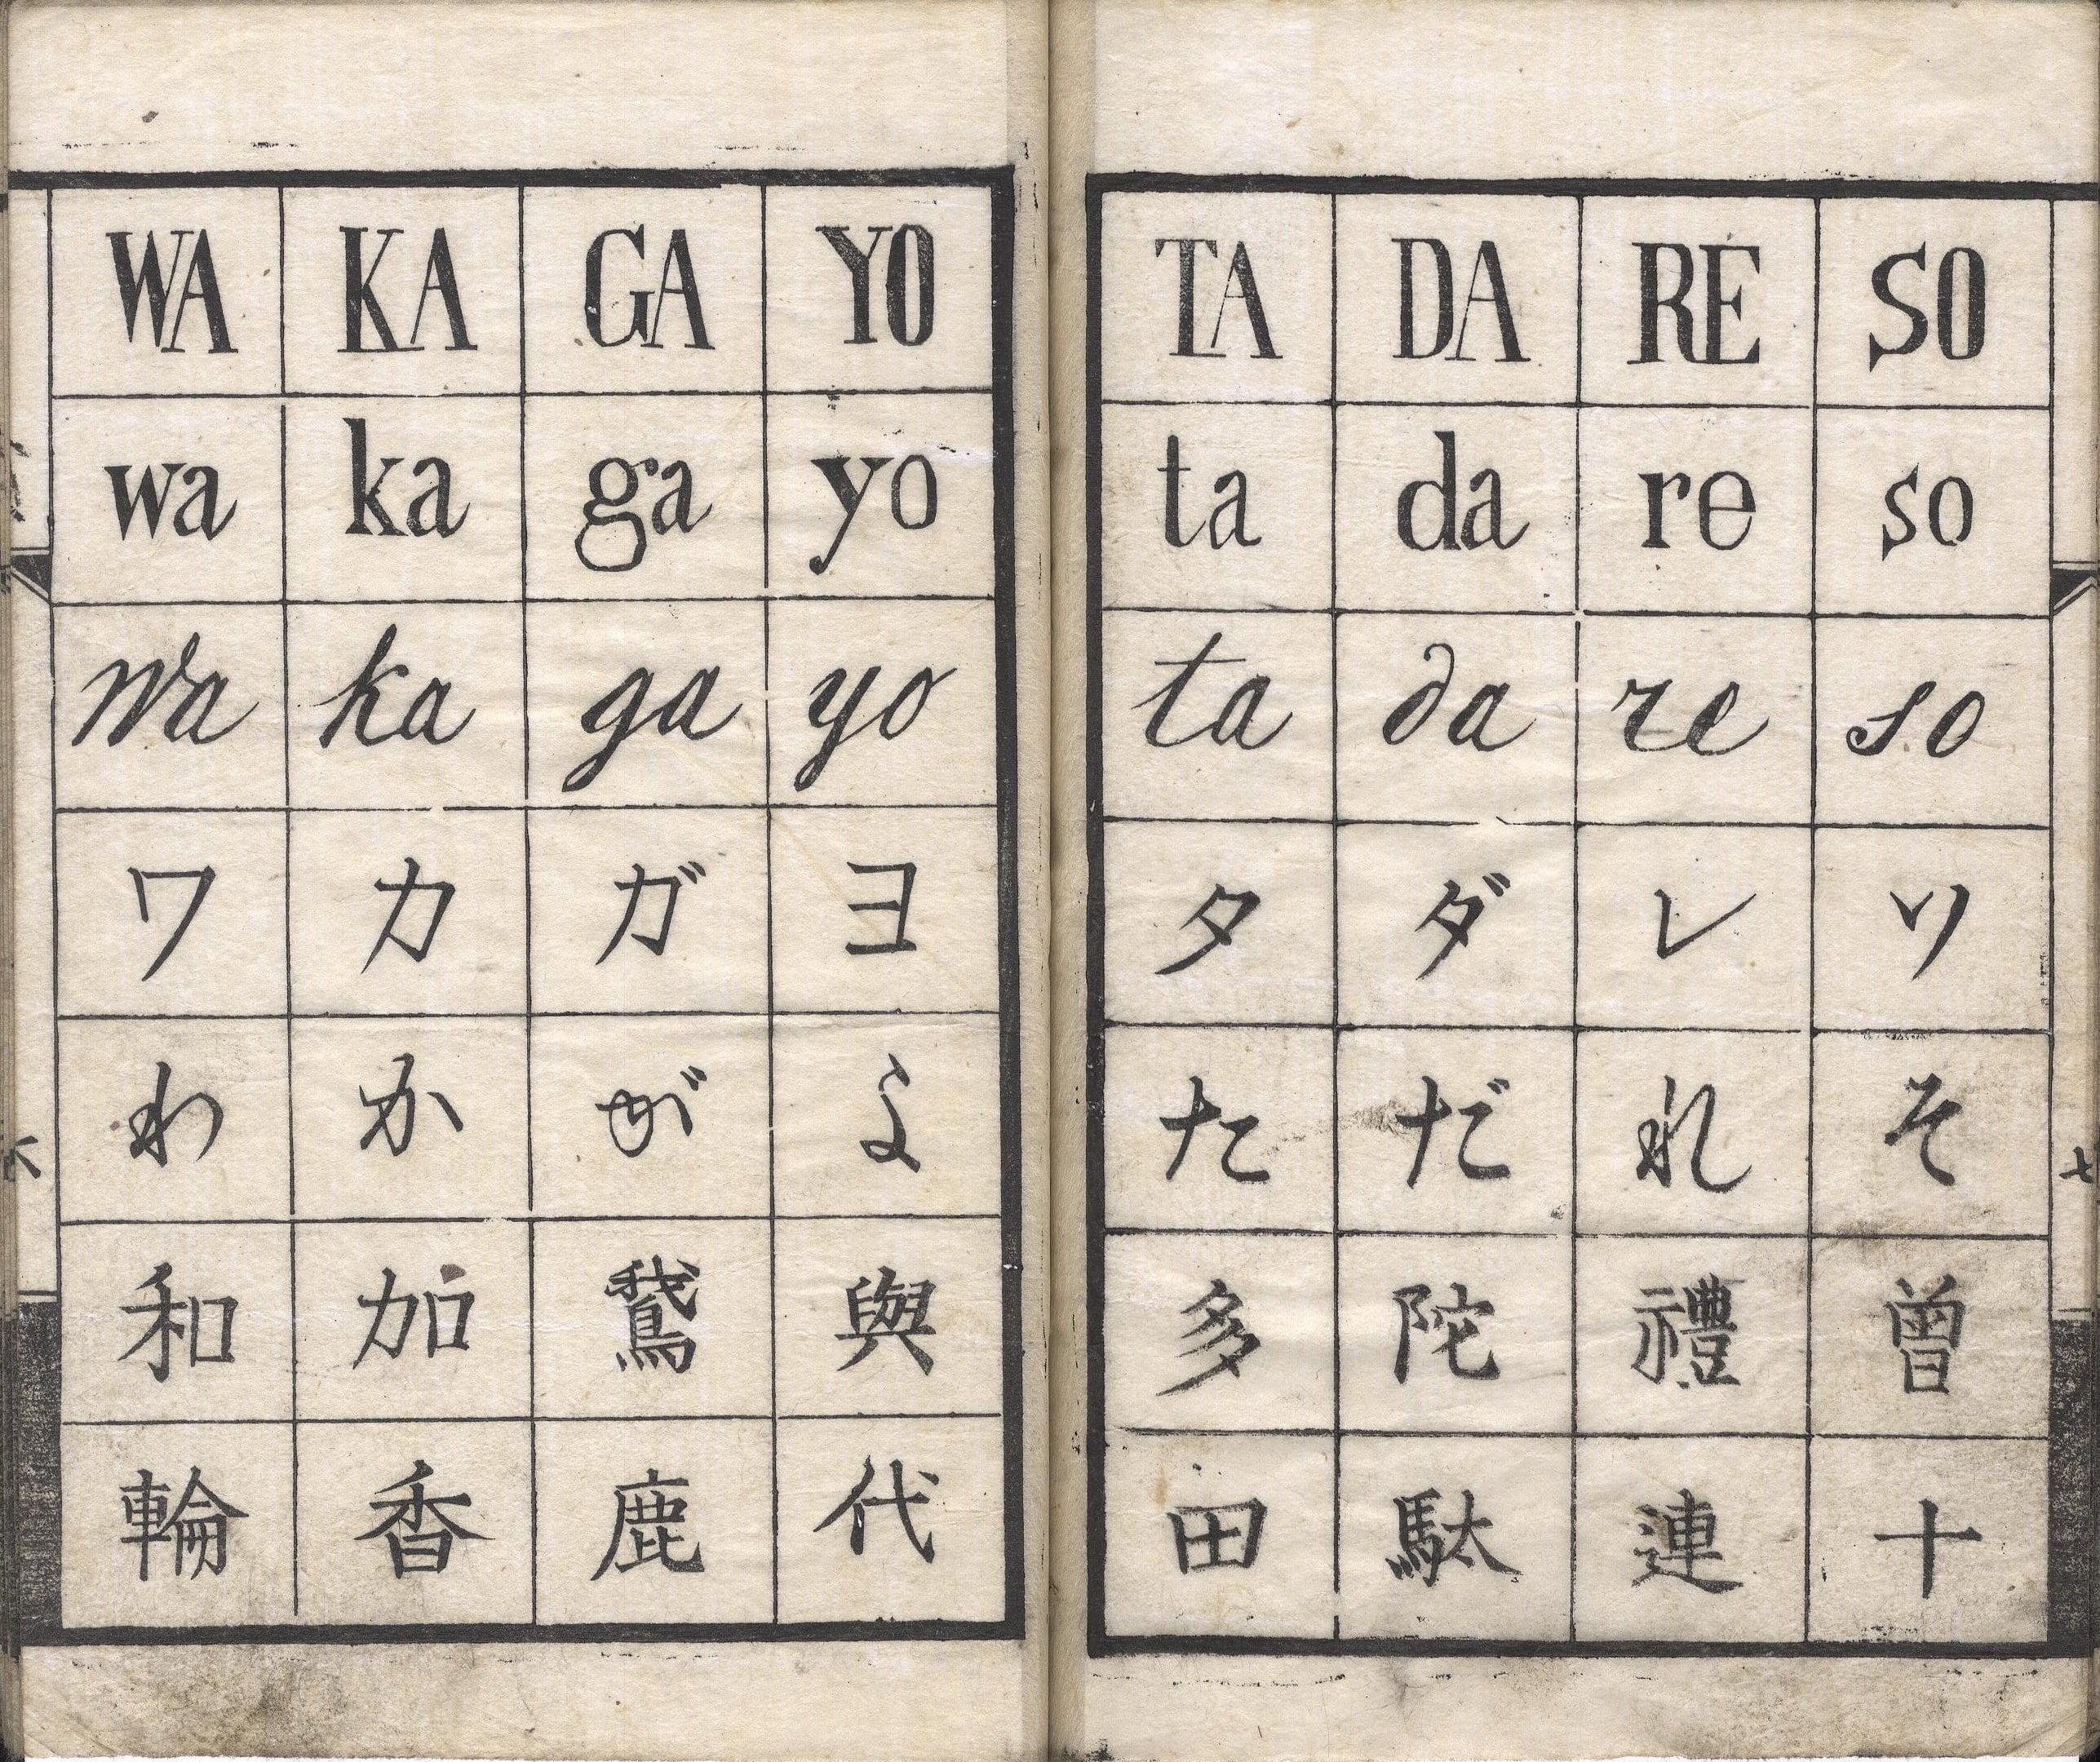 WA KA GA YO
wa ka ga yo
wa ka ga yo
ワ カ ガ ヨ
わ か が よ
和 加 鵞 與
輪 香 鹿 代
TA DA RE SO
ta da re so
ta da re so
タ ダ レ ソ
た だ れ そ
多 陀 禮 曾
田 駄 連 十
七